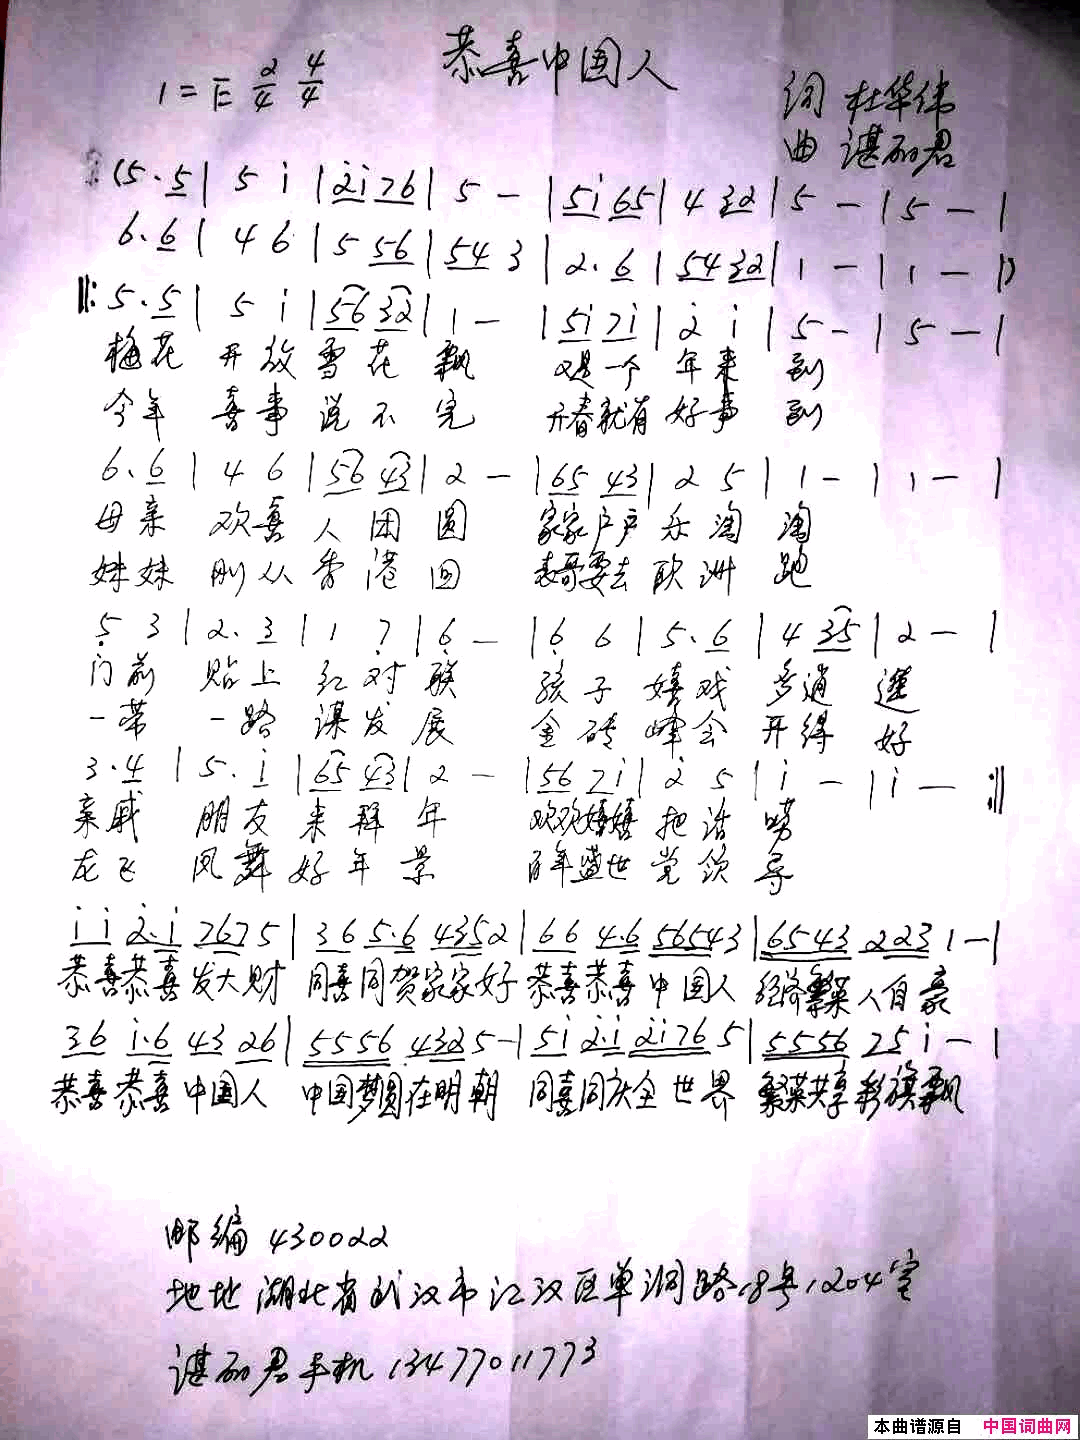 恭喜中国人
1=E 2/4 4/4
词 杜华伟
曲 谌丽君
(5·5| 5 i |2i76| 5 — |5i65| 4 32 | 5 — | 5 — |
6·6 | 4 6 | 5 56 | 54 3 | 2·6 | 5432 | 1 — | 1 — |)
‖: 5·5 | 5 i | 56 32 | 1 — | 5i 7i | 2 i | 5 — | 5 — |
梅花 开放 雪花 飘 又是一个 年来 到
今年 喜事 说不 完 开春就有 好事 到
6·6 | 4 6 | 56 43 | 2 — | 65 43 | 2 5 | 1 — | 1 — |
母亲 欢喜 人团 圆 家家户户 乐淘 淘
妹妹 刚从 香港 回 表哥要去 欧洲 跑
5 3 | 2·3 | 1 7 | 6 — | 6 6 | 5·6 | 4 35 | 2 — |
门前 贴上 红对 联 孩子 嬉戏 多逍 遥
一带 一路 谋发 展 金砖 峰会 开得 好
3·4 | 5·i | 65 43 | 2 — | 56 7i | 2 5 | i — | i — :‖
亲戚 朋友 来拜 年 欢欢嬉嬉 把话 唠
龙飞 凤舞 好年 景 百年盛世 党领 导
i i 2·i 7675 | 36 5·6 4352 | 66 4·6 56543 | 6543 223 1 — |
恭喜恭喜发大财 同喜同贺家家好 恭喜恭喜中国人 经济繁荣人自豪
36 i·6 43 26 | 5556 4325 — | 5i 2·i 2i76 5 | 5556 25 i — |
恭喜恭喜中国人 中国梦圆在明朝 同喜同庆全世界 繁荣共享彩旗飘
邮编 430022
地址 湖北省武汉市江汉区单洞路18号1204室
谌丽君手机 13477011773
本曲谱源自 中国词曲网